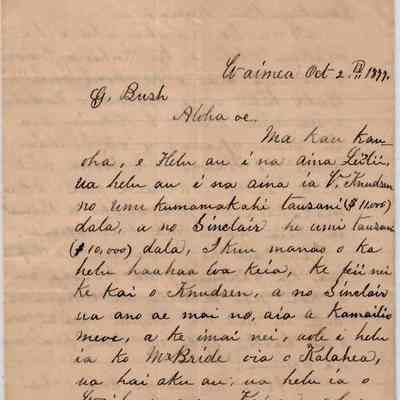 Waimea Oct 2nd 1877.
G. Bush
Aloha oe.
Ma kau kau-
oha, e Helu au i na aina Leílíi,
ua helu au i na aina ia V. Knudsen
no umi kumamakahi tausani ($11,000)
dala, a no Sinclair he umi tausani
($10,000) dala, I kuu manao o ka
helu haahaa loa keia, ke pii nei
ke kai o Knudsen, a no Sinclair
ua ano ae mai no, aia a kamailio
meve, a ke imai nei, aole i helu
ia ko McBride oia o Kalahea,
ua hai aku au; ua helu ia o